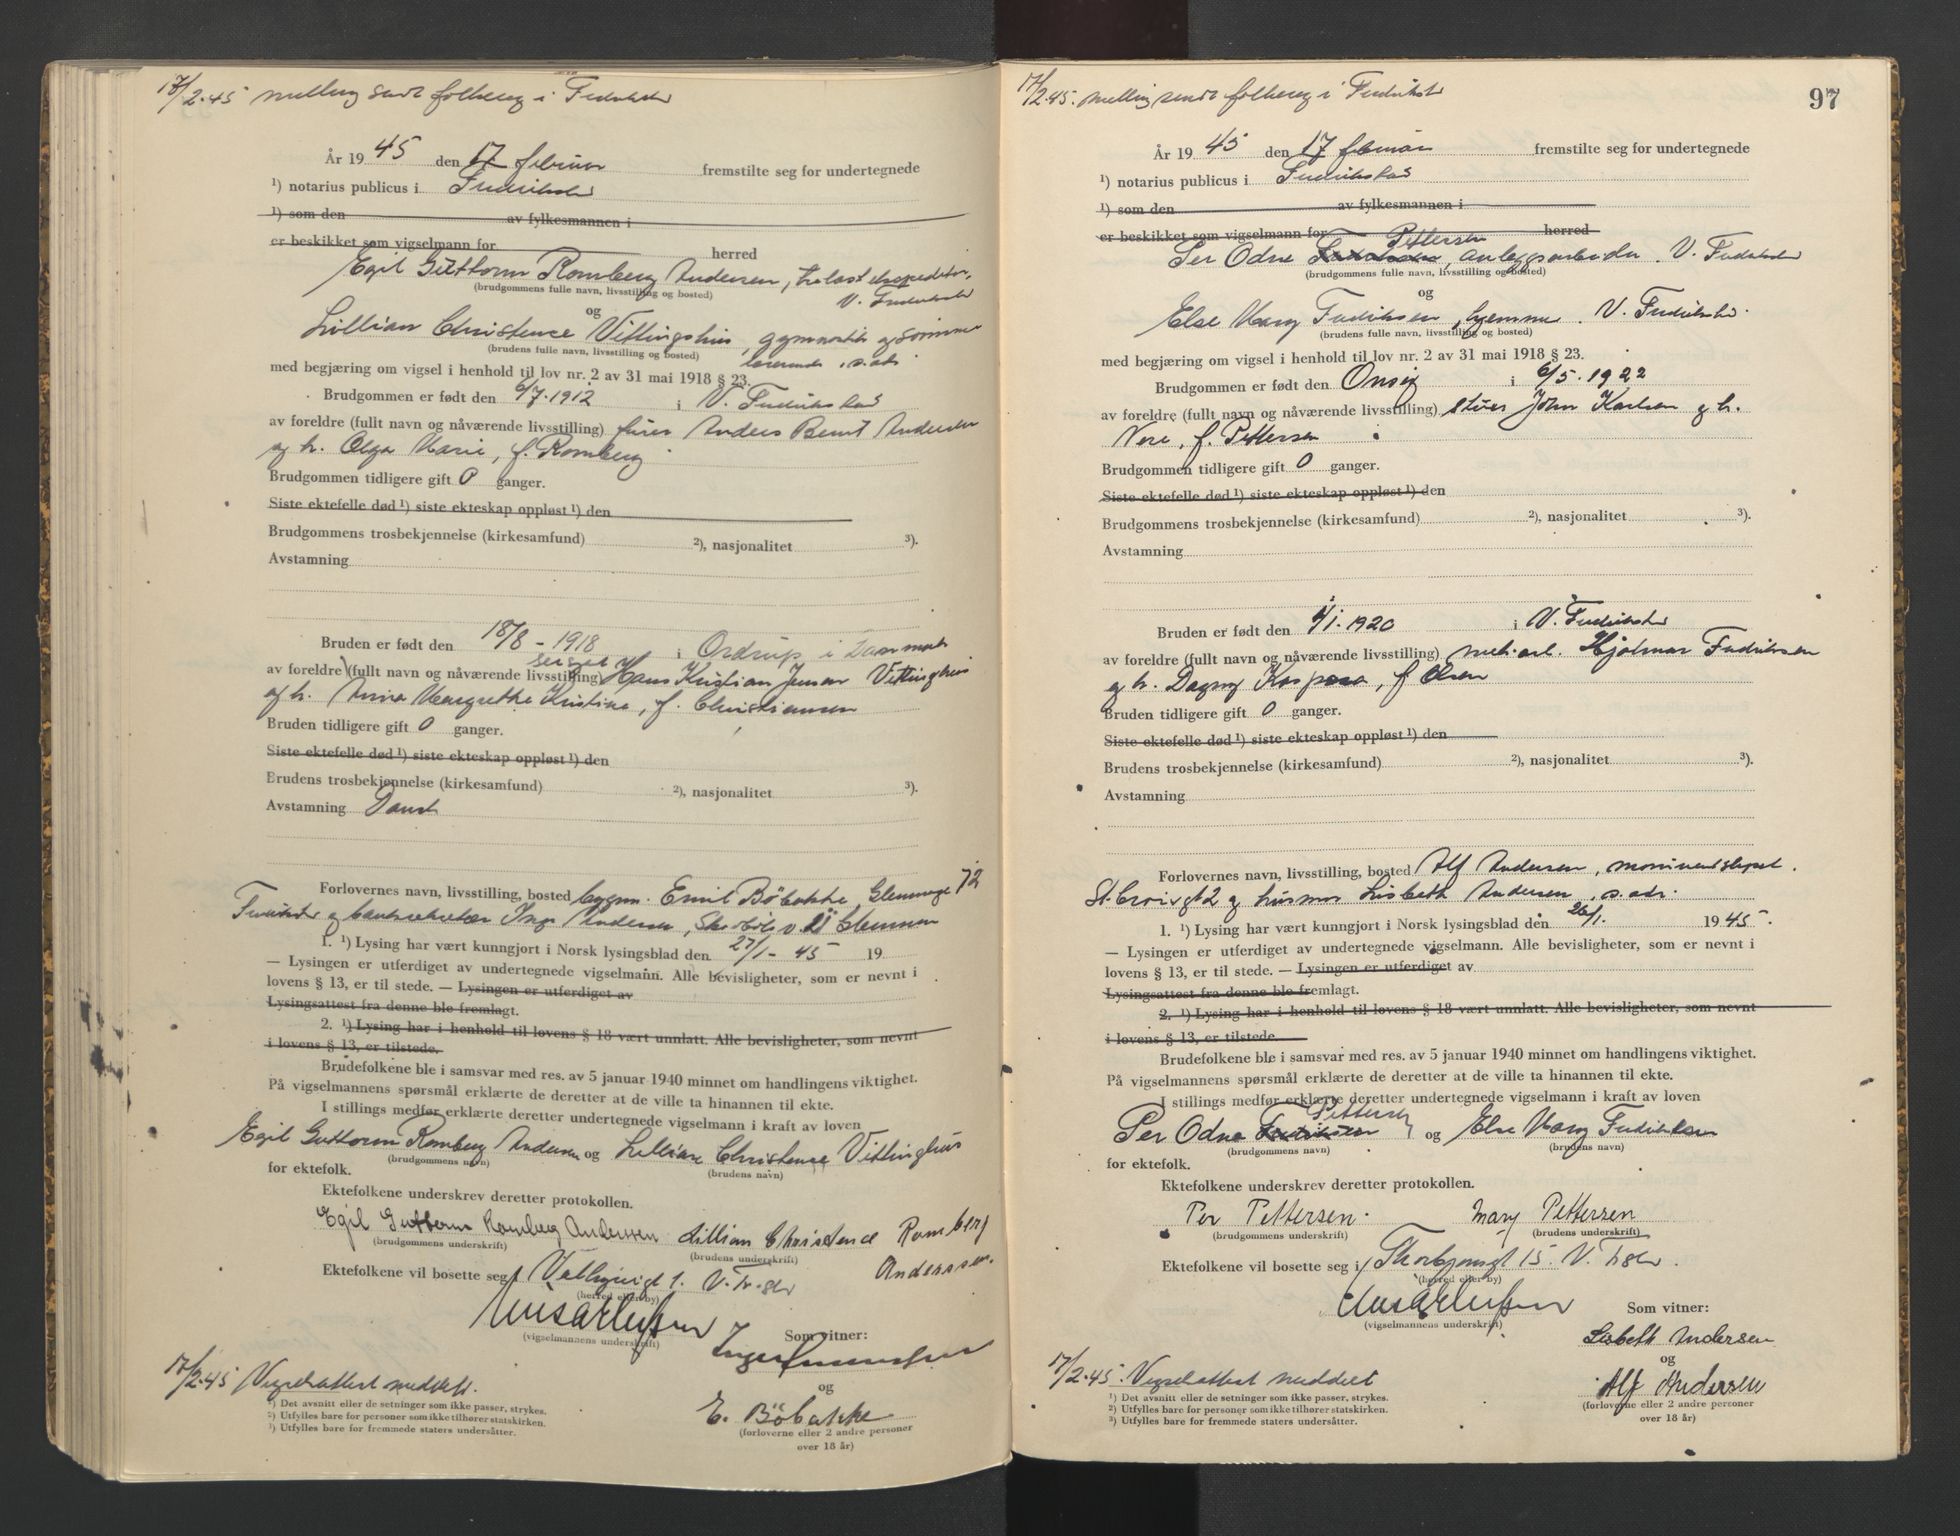 17/2.45 melding sendt folkereg i Fredrikstad
År 19 45 den 17 februar fremstilte seg for undertegnede
¹) notarius publicus i Fredrikstad
¹) som den av fylkesmannen i
er beskikket som vigselmann for herred
Egil Guttorm Romberg Andersen, trelastekspeditør,
(brudgommens fulle navn, livsstilling og bosted)
V. Fredrikstad
og
Lillian Christence Vittinghus, gymnastikk og svømme
(brudens fulle navn, livsstilling og bosted)
lærerinde, s. ads.
med begjæring om vigsel i henhold til lov nr. 2 av 31 mai 1918 § 23.
Brudgommen er født den 6/7.1912 i V. Fredrikstad
av foreldre (fullt navn og nåværende livsstilling) fører Anders Bernt Andersen
og h. Olga Marie, f. Romberg
Brudgommen tidligere gift 0 ganger.
Siste ektefelle død ¹) siste ekteskap oppløst ¹) den
Brudgommens trosbekjennelse (kirkesamfund) ²), nasjonalitet ³).
Avstamning
Bruden er født den 18/8 - 1918 i Ordrup i Danmark
av foreldre (fullt navn og nåværende livsstilling) Hans Kristian Jensen Vittinghus
og h. Anna Margrethe Kristine, f. Christiansen
Bruden tidligere gift 0 ganger.
Siste ektefelle død ¹) siste ekteskap oppløst ¹) den
Brudens trosbekjennelse (kirkesamfund) ²), nasjonalitet ³).
Avstamning Dansk
Forlovernes navn, livsstilling, bosted bygm. Emil Böbakke, Glemmegt 72
Fredrikstad og banksekretær Inge Andersen, Glemmen
1. ¹) Lysing har vært kunngjort i Norsk lysingsblad den 27/1 - 45 19
— Lysingen er utferdiget av undertegnede vigselmann. Alle bevisligheter, som er nevnt i
lovens § 13, er til stede. — Lysingen er utferdiget av
Lysingsattest fra denne ble fremlagt.
2. ¹) Lysing har i henhold til lovens § 18 vært unnlatt. Alle bevisligheter, som nevnt
i lovens § 13, er tilstede.
Brudefolkene ble i samsvar med res. av 5 januar 1940 minnet om handlingens viktighet.
På vigselmannens spørsmål erklærte de deretter at de ville ta hinannen til ekte.
I stillings medfør erklærte deretter undertegnede vigselmann i kraft av loven
Egil Guttorm Romberg Andersen og Lillian Christence Vittinghus
(brudgommens navn) (brudens navn)
for ektefolk.
Ektefolkene underskrev deretter protokollen.
Egil Guttorm Romberg Anderssen Lillian Christence Romberg
(brudgommens underskrift) (brudens underskrift)
Anderssen.
Ektefolkene vil bosette seg i V. Fr.stad
(herred eller by)
(vigselmannens underskrift)
Som vitner:
og
E. Böbakke
(forloverne eller 2 andre personer
over 18 år)
17/2.45 Vigselsattest meddelt.
¹) Det avsnitt eller de setninger som ikke passer, strykes.
²) Utfylles bare for personer som ikke tilhører statskirken.
³) Utfylles bare for fremmede staters undersåtter.
97
17/2.45. melding sendt folkereg i Fredrikstad
År 19 45 den 17 februar fremstilte seg for undertegnede
¹) notarius publicus i Fredrikstad
¹) som den av fylkesmannen i
er beskikket som vigselmann for herred
Pettersen
Per Odne Fredriksen, anleggsarbeider. V. Fredrikstad
(brudgommens fulle navn, livsstilling og bosted)
og
Else Mary Fredriksen, hjemme. V. Fredrikstad.
(brudens fulle navn, livsstilling og bosted)
med begjæring om vigsel i henhold til lov nr. 2 av 31 mai 1918 § 23.
Brudgommen er født den Onsøy i 6/5.1922
av foreldre (fullt navn og nåværende livsstilling) stuer John Karlsen og h.
f. Pettersen
Brudgommen tidligere gift 0 ganger.
Siste ektefelle død ¹) siste ekteskap oppløst ¹) den
Brudgommens trosbekjennelse (kirkesamfund) ²), nasjonalitet ³).
Avstamning
Bruden er født den 1/1.1920 i V. Fredrikstad
av foreldre (fullt navn og nåværende livsstilling) mek. arb. Hjalmar Fredriksen
og h. Dagny Kaspara, f. Olsen
Bruden tidligere gift 0 ganger.
Siste ektefelle død ¹) siste ekteskap oppløst ¹) den
Brudens trosbekjennelse (kirkesamfund) ²), nasjonalitet ³).
Avstamning
Forlovernes navn, livsstilling, bosted Alf Andersen,
St. Croixgt 2 og husmor Lisbeth Andersen, s. ads.
1. ¹) Lysing har vært kunngjort i Norsk lysingsblad den 26/1. 1945.
— Lysingen er utferdiget av undertegnede vigselmann. Alle bevisligheter, som er nevnt i
lovens § 13, er til stede. — Lysingen er utferdiget av
Lysingsattest fra denne ble fremlagt.
2. ¹) Lysing har i henhold til lovens § 18 vært unnlatt. Alle bevisligheter, som nevnt
i lovens § 13, er tilstede.
Brudefolkene ble i samsvar med res. av 5 januar 1940 minnet om handlingens viktighet.
På vigselmannens spørsmål erklærte de deretter at de ville ta hinannen til ekte.
I stillings medfør erklærte deretter undertegnede vigselmann i kraft av loven
Pettersen
Per Odne Fredriksen og Else Mary Fredriksen
(brudgommens navn) (brudens navn)
for ektefolk.
Ektefolkene underskrev deretter protokollen.
Per Pettersen. Mary Pettersen
(brudgommens underskrift) (brudens underskrift)
Ektefolkene vil bosette seg i Thorbjørnsgt 15. V. Fr.stad.
(herred eller by)
(vigselmannens underskrift)
Som vitner:
Lisbeth Andersen
og
Alf Andersen
(forloverne eller 2 andre personer
over 18 år)
17/2.45. Vigselsattest meddelt
¹) Det avsnitt eller de setninger som ikke passer, strykes.
²) Utfylles bare for personer som ikke tilhører statskirken.
³) Utfylles bare for fremmede staters undersåtter.